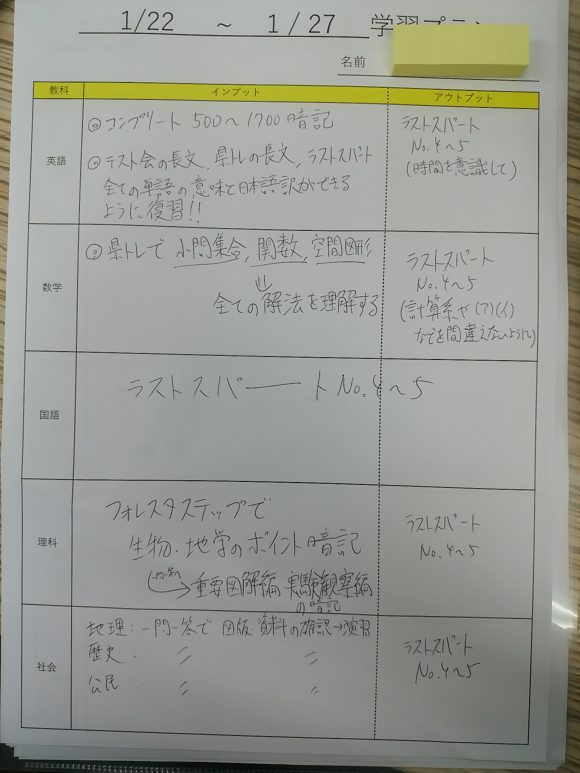 1/22 ~ 1/27 学習プラン
名前
教科 インプット アウトプット
英語
◎コンプリート 500~1700 暗記
◎テスト会の長文、県トレの長文、ラストスパート
全ての単語の意味と日本語訳ができる
ように復習!!
ラストスパート
No.4~5
(時間を意識して)
数学
◎県トレで 小問集合, 関数, 空間図形
⇓
全ての解法を理解する
ラストスパート
No.4~5
(計算系や(ア)(イ)
などを間違えないように)
国語
ラストスパート No.4~5
理科
フォレスタステップで
生物・地学のポイント暗記
一問一答へ
重要図解編・実験観察編
の暗記
ラストスパート
No.4~5
社会
地理: 一問一答で 図版 資料の確認→演習
歴史: 〃 〃
公民: 〃 〃
ラストスパート
No.4~5